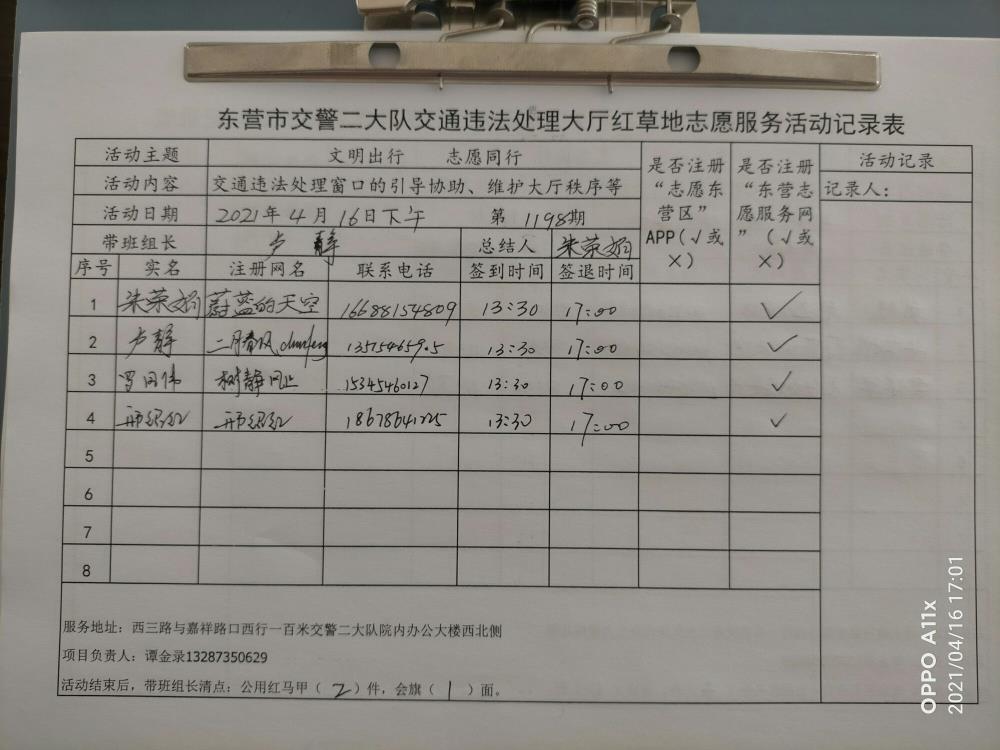 东营市交警二大队交通违法处理大厅红草地志愿服务活动记录表
活动主题 文明出行 志愿同行 是否注册“志愿东营区”APP(√或×) 是否注册“东营志愿服务网”(√或×) 活动记录
活动内容 交通违法处理窗口的引导协助、维护大厅秩序等 记录人:
活动日期 2021年4月16日下午 第1198期
带班组长 卢静 总结人 朱荣娟
序号 实名 注册网名 联系电话 签到时间 签退时间
1 朱荣娟 蔚蓝的天空 16688154809 13:30 17:00 √
2 卢静 二月春风 13:30 17:00 √
3 树静风止 15345460127 13:30 17:00 √
4 13:30 17:00 √
5
6
7
8
服务地址:西三路与嘉祥路口西行一百米交警二大队院内办公大楼西北侧
项目负责人:谭金录13287350629
活动结束后,带班组长清点:公用红马甲(2)件,会旗(1)面。
OPPO A11x
2021/04/16 17:01